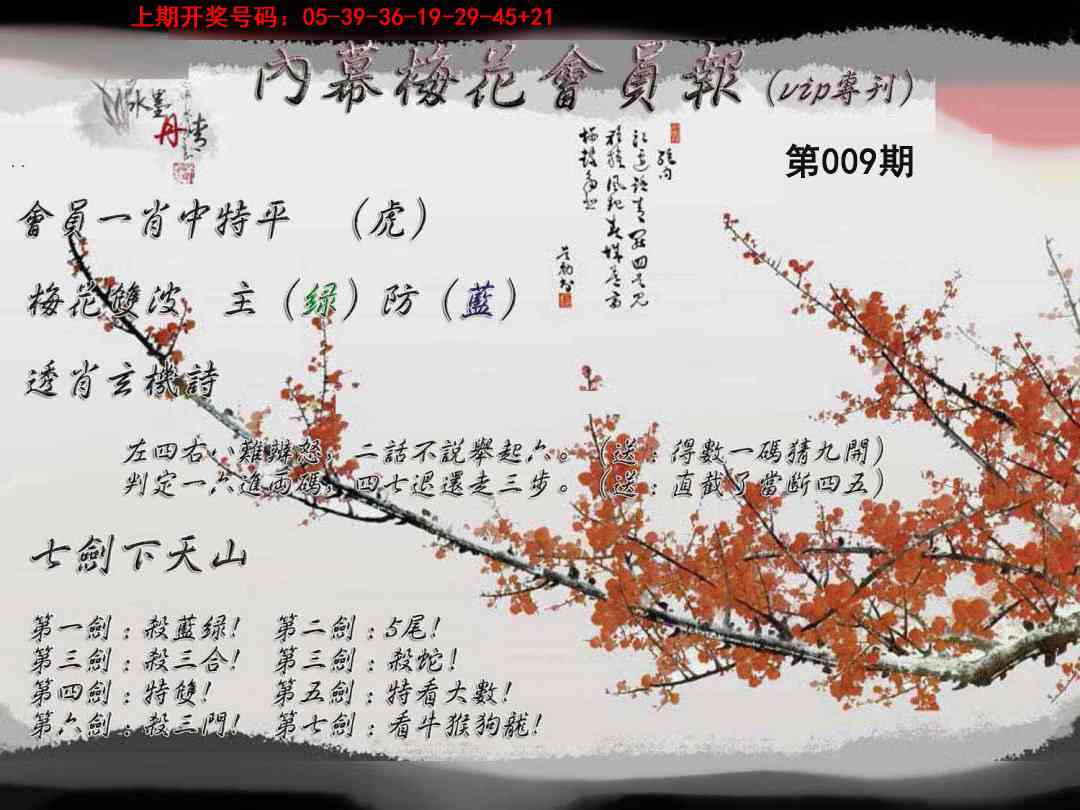 上期开奖号码：05-39-36-19-29-45+21
內幕梅花會員報（vip專刊）
水墨
丹青
第009期
會員一肖中特平 （虎）
梅花雙波 主（绿）防（藍）
透肖玄機詩
左四右八難辨怒，二話不説舉起六。（送：得數一碼猜九開）
判定一六進両碼，四七退還走三步。（送：直截了當斷四五）
七劍下天山
第一劍：殺藍绿！ 第二劍：5尾！
第三劍：殺三合！ 第三劍：殺蛇！
第四劍：特雙！ 第五劍：特看大數！
第六劍：殺三門！ 第七劍：看牛猴狗龍！